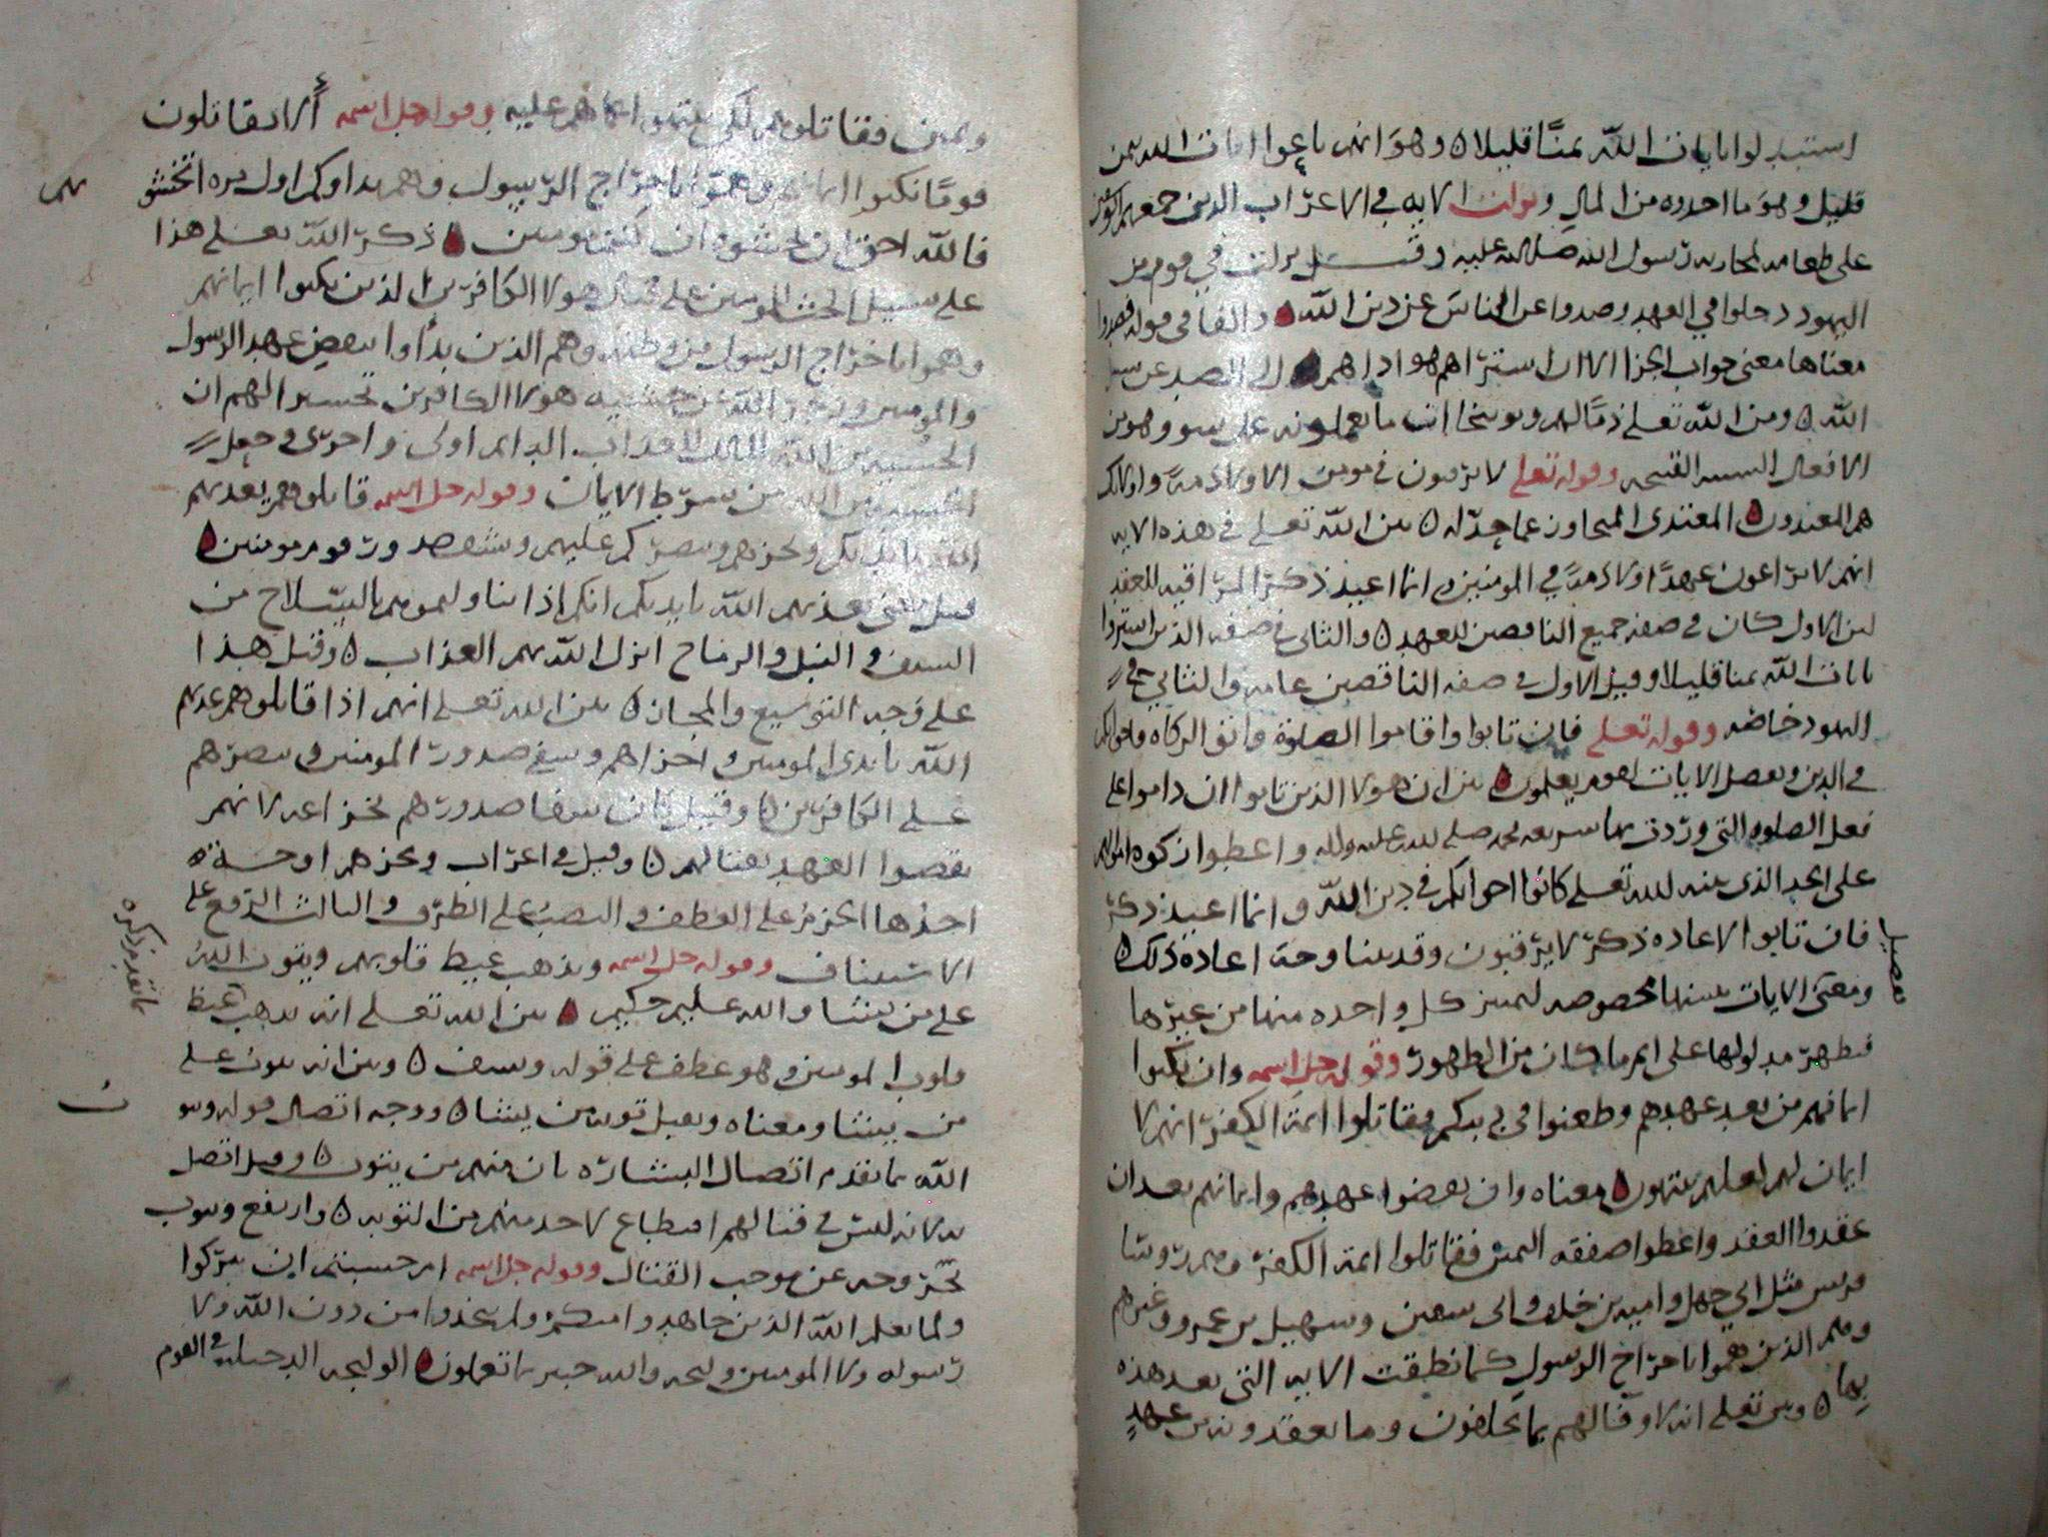 استبدلوا بايات الله ثمنا قليلا ه وهو انهم باعوا ايات الله بثمن
قليل وهو ما اخذوه من المال ونزلت الايه في الاعراب الذين جمعهم
على طعامه لمحاربه رسول الله صلى الله عليه وقيل نزلت في قوم من
اليهود دخلوا في العهد وصدوا عن الناس عن دين الله ه والفا في قوله فصدوا
معناها معنى جواب الجزا لان اشتراهم هو اداهم الى الصد عن سبيل
الله ه وبين الله تعلى ذما لهم وتوبيخا ان ما يعملونه على سو وهو من
الافعال القبيحه وقوله تعلى لا يرقبون في مومن الا ولا ذمة واولايك
هم المعتدون ه المعتدى المتجاوز عما حد له ه بين الله تعلى في هذه الايه
انهم لا يراعون عهدا ولا ذمة في المومنين ه انما اعيد ذكر المراقبه للعقد
لان الاول كان في صفه جميع الناقصين للعهد ه والثاني في صفه الذين اشتروا
بايات الله ثمنا قليلا وقيل الاول في صفه الناقصين عامه والثاني في
اليهود خاصه وقوله تعلى فان تابوا واقاموا الصلوة واتوا الزكاه فاخوانكم
في الدين ونفصل الايات لقوم يعلمون ه بين ان هولا الذين تابوا ان داموا على
فعل الصلوه التي وردت بها شريعه محمد صلى الله عليه واله واعطوا زكوه اموالهم
على الحد الذى بينه الله تعلى كانوا اخوانكم في دين الله وانما اعيد ذكر
فان تابوا لاعاده ذكر لا يرقبون وقد بينا وجه اعادة ذلك ه
ومعنى الايات تفصيلها مخصوصه لتميز كل واحده منها من غيرها
فيظهر مدلولها على اتم ما كان من الظهور وقوله جل اسمه وان نكثوا
ايمانهم من بعد عهدهم وطعنوا في دينكم فقاتلوا ايمة الكفر انهم لا
ايمان لهم لعلهم ينتهون ه معناه وان نقضوا عهدهم وايمانهم بعد ان
عقدوا العقد واعطوا صفقه اليمين فقاتلوا ايمة الكفر وهم روسا
قريش مثل ابي جهل واميه بن خلف وابى سفين وسهيل بن عمرو وغيرهم
وهم الذين هموا باخراج الرسول كما نطقت الايه التي بعد هذه
بها ه وبين تعلى انه لا وفا لهم بما يحلفون وما يعقدونه من عهد
ويمين فقاتلوهم لكى ينتهوا عما هم عليه وقوله جل اسمه ألا تقاتلون
قوما نكثوا ايمانهم وهموا باخراج الرسول وهم بداوكم اول مره اتخشونهم
فالله احق ان تخشوه ان كنتم مومنين ه ذكر الله تعلى هذا
على سبيل الحث للمومنين على قتال هولا الكافرين الذين نكثوا ايمانهم
وهموا باخراج الرسول من وطنه وهم الذين بدأوا بنقض عهد الرسول
والمومنين وزجر الله عن خشيه هولا الكافرين تحسبوا لهم ان
الخشيه من الله المالك لاعداب الدايم اولى واحرى وجعل
الخشيه من الله من شرط الايمان وقوله جل اسمه قاتلوهم يعذبهم
الله بايديكم ويخزهم وينصركم عليهم ويشف صدور قوم مومنين ه
قيل معنى يعذبهم الله بايديكم انكم اذا تناولتموهم بالسلاح من
السيف والنبل والرماح انزل الله بهم العذاب ه وقيل هذا
على وجه التوسيع والمجاز ه بين الله تعلى انهم اذا قاتلوهم عذبهم
الله بايدى المومنين واخزاهم وشفى صدور المومنين ونصرهم
على الكافرين ه وقيل كان شفا صدورهم بخزاعه لانهم
نقضوا العهد بقتالهم ه وقيل في اعراب ويخزهم اوجه
احدها الجزم على العطف والنصب على الظرف والثالث الرفع على
الاستيناف وقوله جل اسمه ويذهب غيظ قلوبهم ويتوب الله
على من يشا والله عليم حكيم ه بين الله تعلى انه يذهب غيظ
قلوب المومنين وهو عطف على قوله ويشف ه وبين انه يتوب على
من يشا ومعناه ويقبل توبه من يشا ه ووجه اتصال قوله ويتوب
الله بما تقدم اتصال البشاره بان منهم من يتوب ه وقيل اتصل
به لانه ليس في قتالهم اقتطاع لاحد منهم من التوبه ه وارتفع ويتوب
بخروجه عن موجب القتال وقوله جل اسمه ام حسبتم ان تتركوا
ولما يعلم الله الذين جاهدوا منكم ولم يتخذوا من دون الله ولا
رسوله ولا المومنين وليجه والله خبير بما تعملون ه الوليجه الدخيله في القوم
ما تقدم ذكره